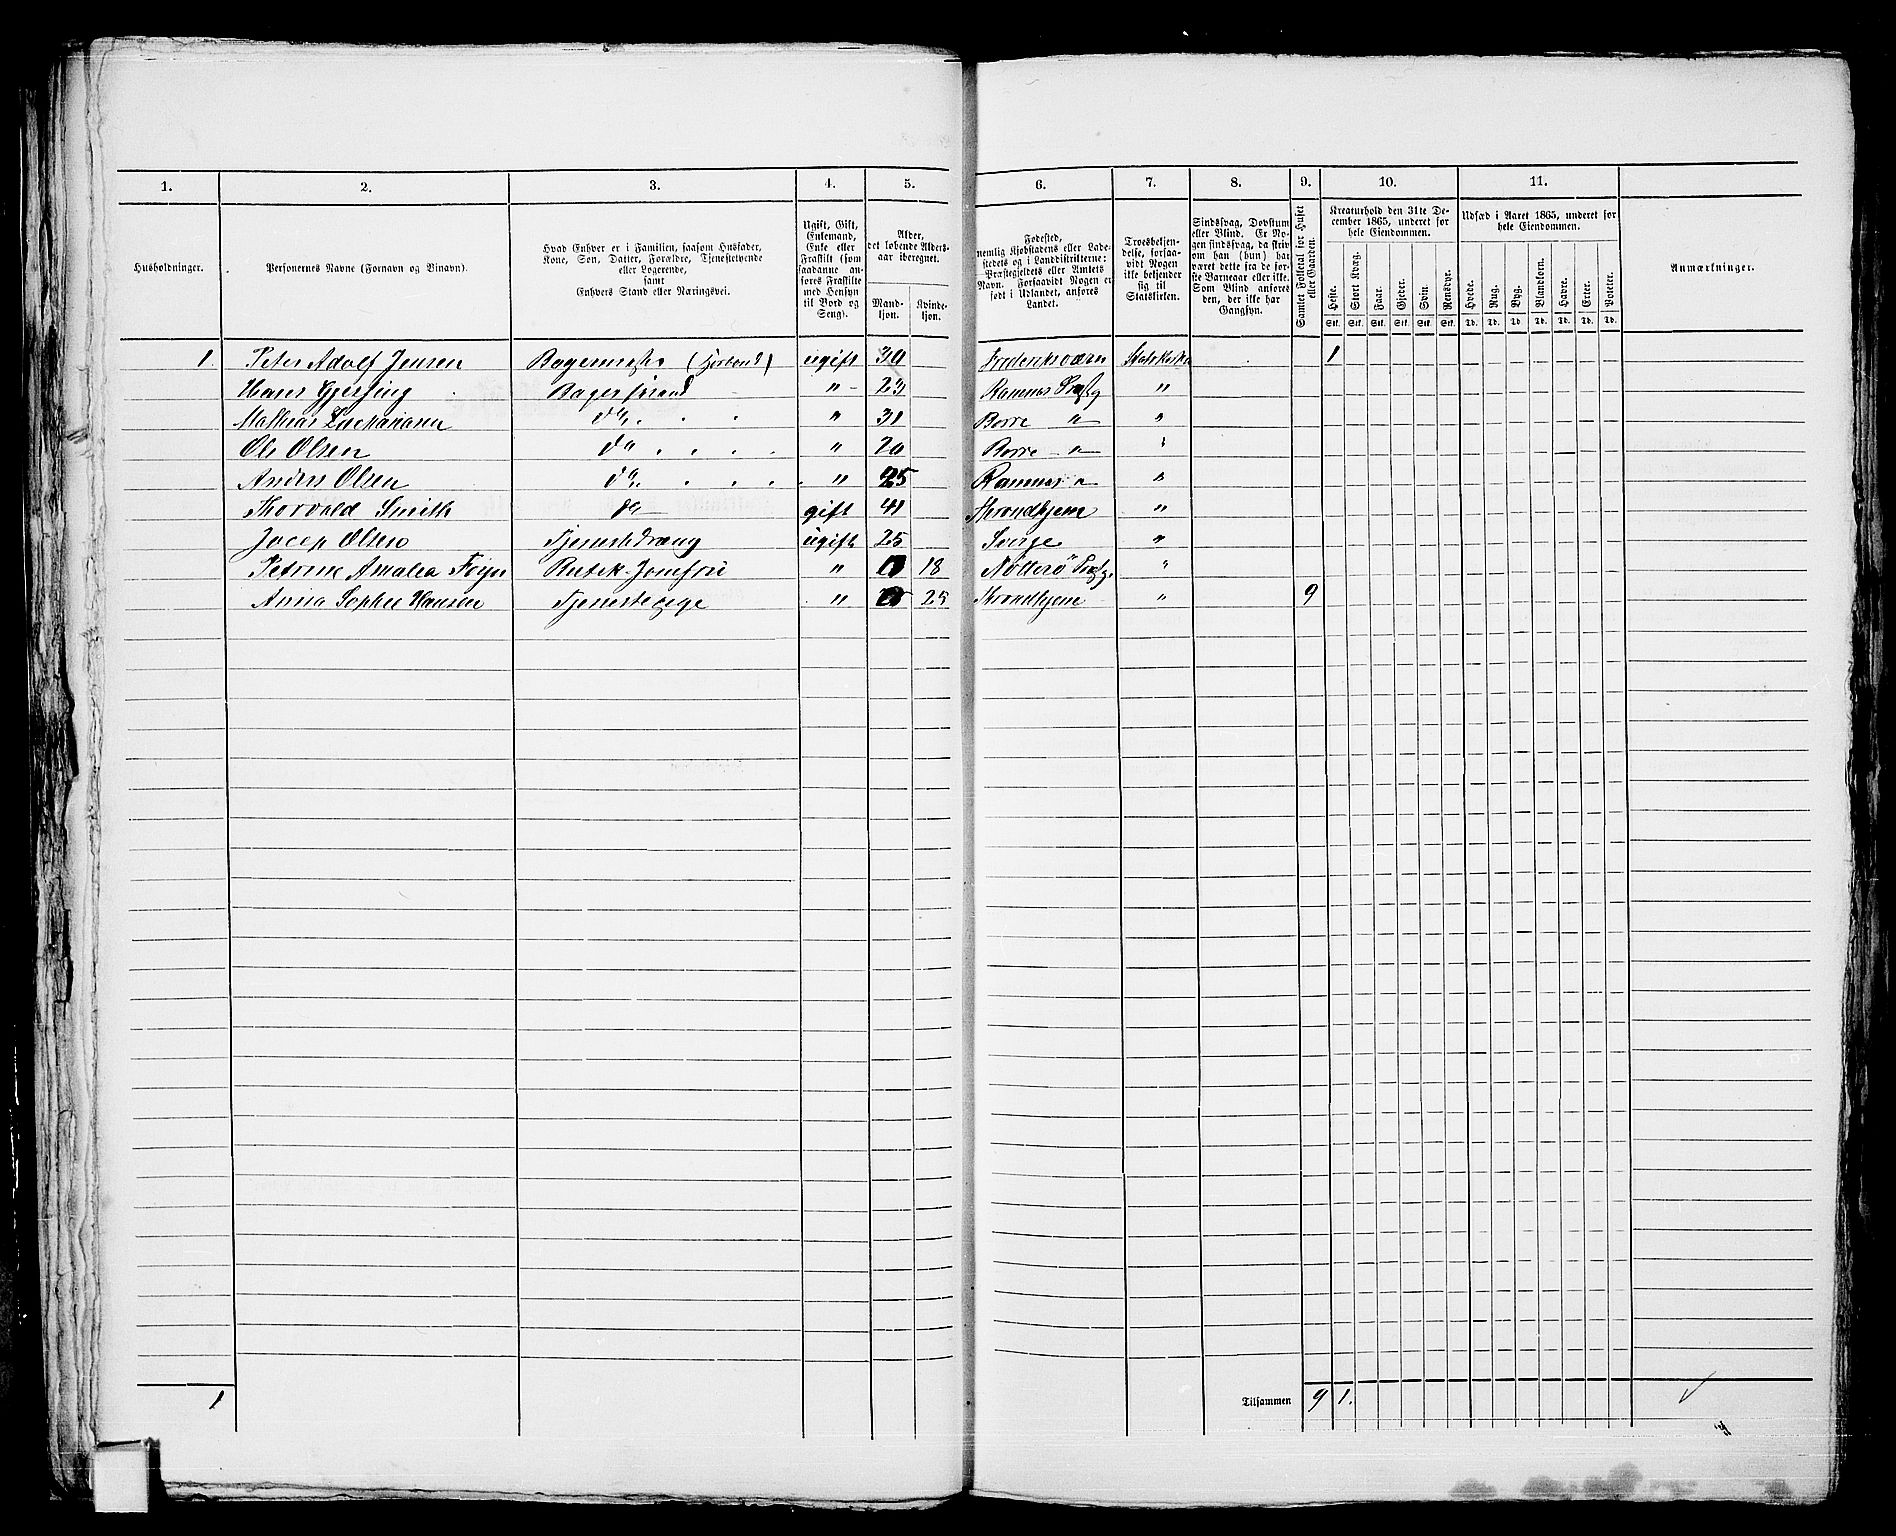 1. 2. 3. 4. 5. 6. 7. 8. 9. 10. 11.
Husholdninger.
Personernes Navne (Fornavn og Binavn).
Hvad Enhver er i Familien, saasom Husfader,
Kone, Søn, Datter, Forældre, Tjenestetyende
eller Logerende,
samt
Enhvers Stand eller Næringsvei.
Ugift, Gift,
Enkemand,
Enke eller
Fraskilt (som
saadanne an-
føres Fraskilte
med Hensyn
til Bord og
Seng).
Alder,
det løbende Alders-
aar iberegnet.
Mand-
kjøn.
Kvinde-
kjøn.
Fødested,
nemlig Kjøbstadens eller Lade-
stedets og i Landdistrikterne:
Præstegjeldets eller Amtets
Navn. Forsaavidt Nogen er
født i Udlandet, anføres
Landet.
Troesbekjen-
delse, forsaa-
vidt Nogen
ikke bekjender
sig til
Statskirken.
Sindssvag, Døvstum
eller Blind. Er No-
gen sindssvag, da skriv
om han (hun) har
været dette fra de før-
ste Barneaar eller ikke.
Som Blind anføres
den, der ikke har
Gangsyn.
Samlet Folketal for Huset
eller Gaarden.
Kreaturhold den 31te De-
cember 1865, anføret for
hele Eiendommen.
Heste. Stort Kvæg. Faar. Gjeder. Svin. Rensdyr.
Stk. Stk. Stk. Stk. Stk. Stk.
Udsæd i Aaret 1865, anføret for
hele Eiendommen.
Hvede. Rug. Byg. Blandkorn. Havre. Erter. Poteter.
Td. Td. Td. Td. Td. Td. Td.
Anmærkninger.
1. Peter Adolf Jensen Bagermester ugift 30 Frederiksværn Statskirke 1
Hans Gjersing Bagersvend " 23 Ramnes Prstg "
Mathias Zachariasen do " 31 Borre " "
Ole Olsen do " 20 Borre " "
Anders Olsen do " 25 Ramnes " "
Thorvald Smith do gift 41 Throndhjem "
Jocep Olsen Tjenestedreng ugift 25 Sverge "
Petrine Amalia Foyn Butik-Jomfru " 18 Nötterö Prstg. "
Anna Sophie Hansen Tjenestepige " 25 Throndhjem " 9
1 Tilsammen 9 1.